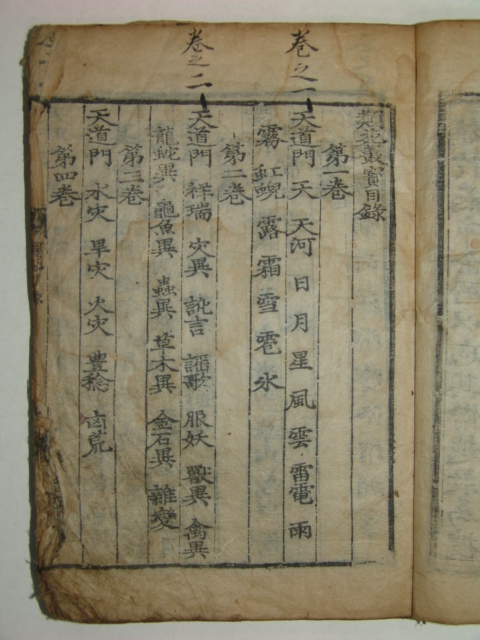 卷之一
卷之二
類苑叢寶目錄
第一卷
天道門 天 天河 日 月 星 風 雲 雷 電 雨
霧 虹蜺 露 霜 雪 雹 氷
第二卷
天道門 祥瑞 灾異 訛言 謳歌 服妖 獸異 禽異
龍蛇異 龜魚異 蟲異 草木異 金石異 雜變
第三卷
天道門 水灾 旱灾 火灾 豊稔 凶荒
第四卷